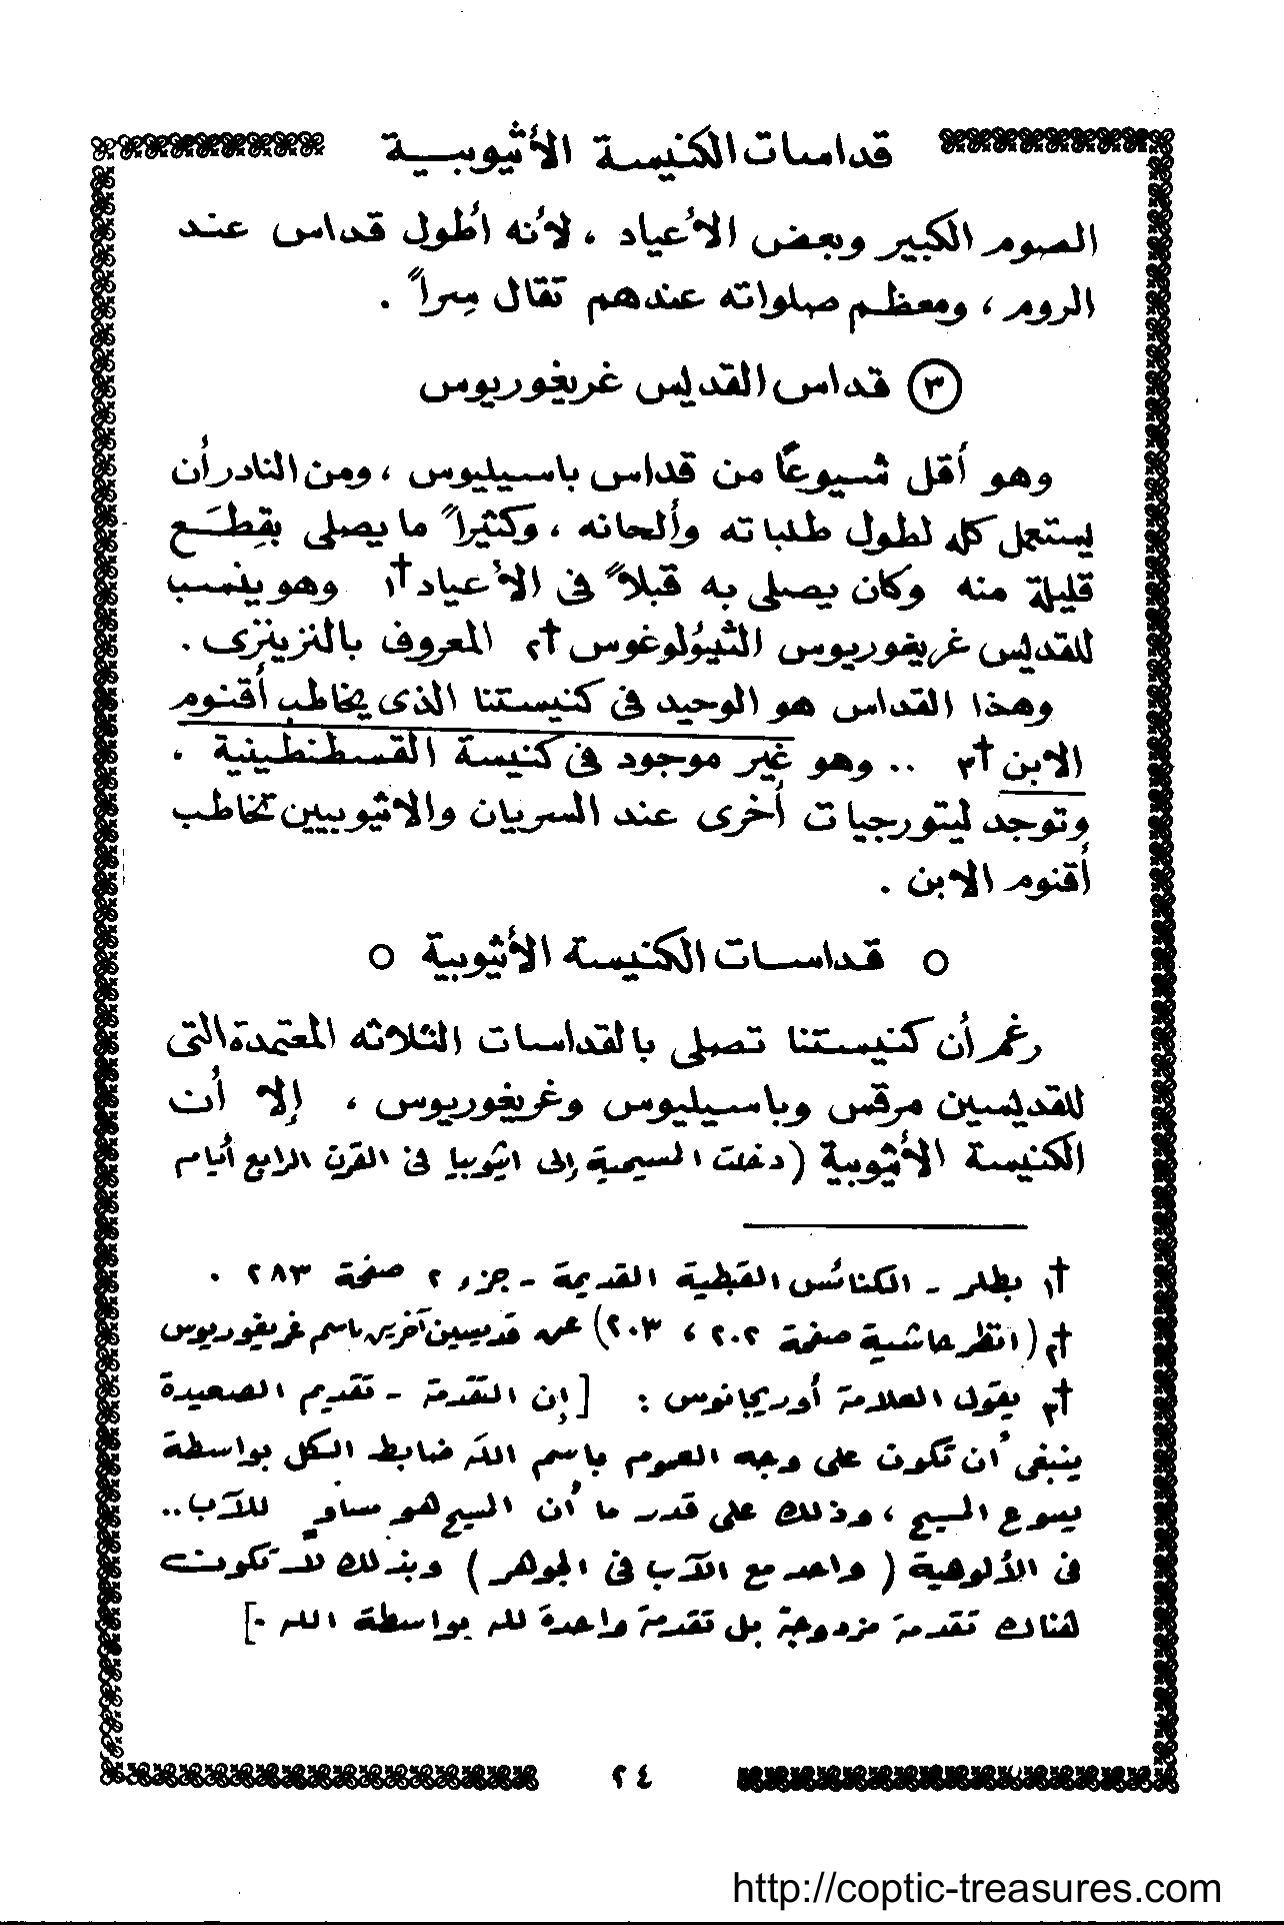 قداسات الكنيسة الأثيوبية
الصوم الكبير وبعض الأعياد ، لأنه أطول قداس عند
الروم ، ومعظم صلواته عندهم تقال سِراً .
٣ قداس القديس غريغوريوس
وهو أقل شيوعًا من قداس باسيليوس ، ومن النادر أن
يستعمل كله لطول طلباته وألحانه ، وكثيراً ما يصلى بقِطَع
قليلة منه وكان يصلى به قبلاً فى الأعياد †١ وهو ينسب
للقديس غريغوريوس الثيئولوغوس †٢ المعروف بالنزينزى .
وهذا القداس هو الوحيد فى كنيستنا الذى يخاطب أقنوم
الابن †٣ .. وهو غير موجود فى كنيسة القسطنطينية .
وتوجد ليتورجيات أخرى عند السريان والاثيوبيين تخاطب
أقنوم الابن .
○ قداسات الكنيسة الأثيوبية ○
رغم أن كنيستنا تصلى بالقداسات الثلاثه المعتمدة التى
للقديسين مرقس وباسيليوس وغريغوريوس ، إلا أن
الكنيسة الأثيوبية ( دخلت المسيحية إلى اثيوبيا فى القرن الرابع أيام
†١ بطلر - الكنائس القبطية القديمة - جزء ٢ صفحة ٢٨٣ .
†٢ ( انظر حاشية صفحة ٢٠٢ ، ٢٠٣ ) عن قديسين آخرين باسم غريغوريوس
†٣ يقول العلامة أوريجانوس : [ إن التقدمة - تقديم الصعيدة
ينبغى أن تكون على وجه العموم باسم الله ضابط الكل بواسطة
يسوع المسيح ، وذلك على قدر ما أن المسيح هو مساوٍ للآب ..
فى الألوهية ( واحد مع الآب فى الجوهر ) وبذلك لا تكون
هناك تقدمة مزدوجة بل تقدمة واحدة لله بواسطة الله . ]
٢٤
http://coptic-treasures.com